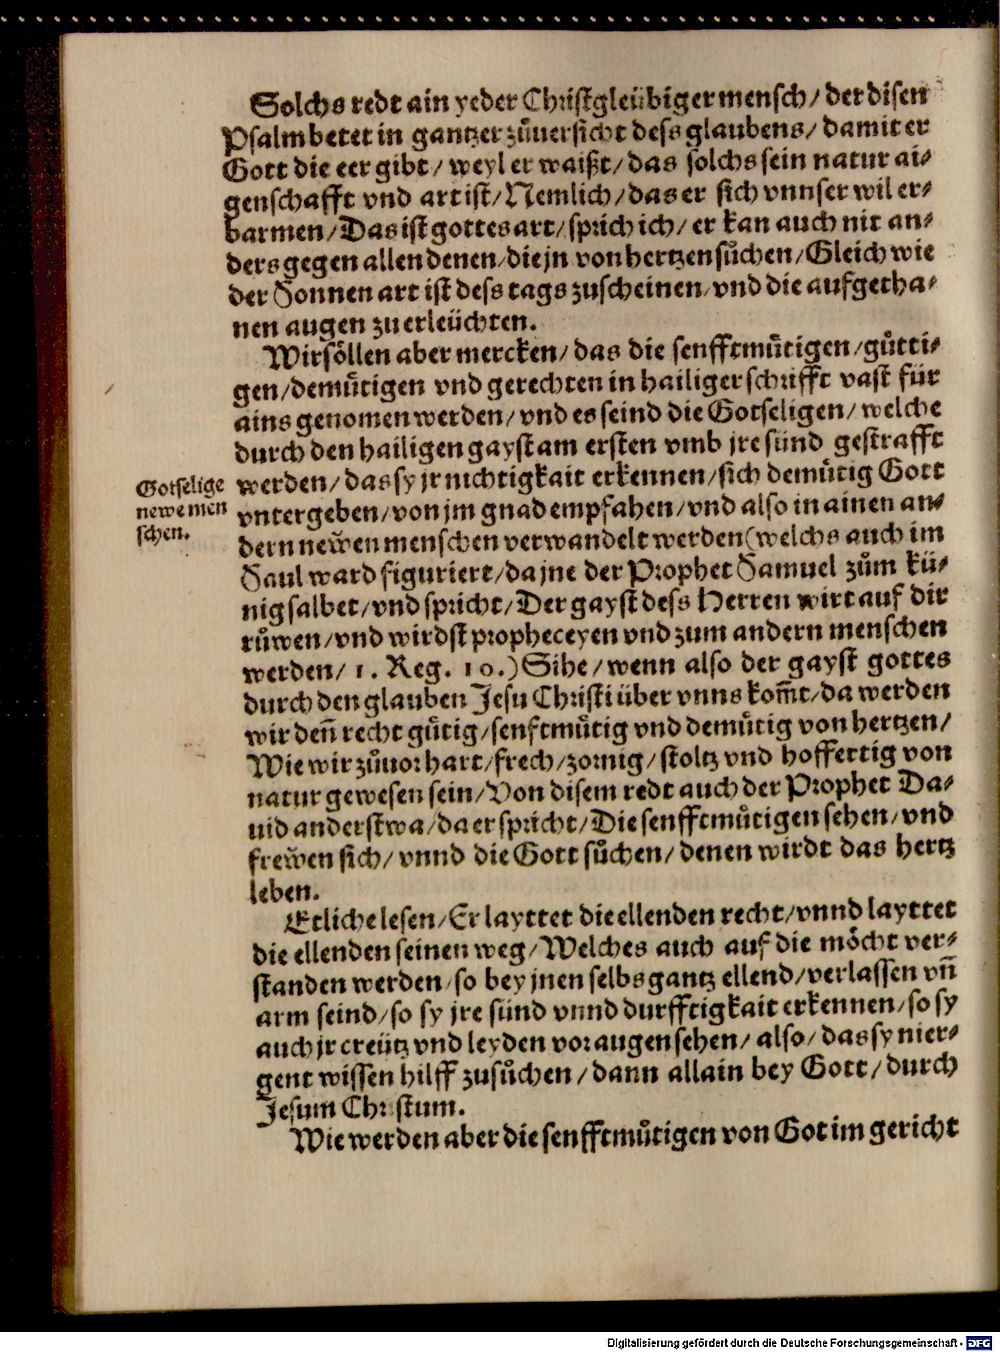 Solchs redt ain yeder Christgleübiger mensch/ der disen
Psalm betet in gantzer zůuersicht dess glaubens/ damit er
Gott die eer gibt/ weyl er waißt/ das solchs sein natur ai-
genschafft vnd art ist/ Nemlich/ das er sich vnnser wil er-
barmen/ Das ist gottes art/ sprich ich/ er kan auch nit an-
ders gegen allen denen/ die jn von hertzen sůchen/ Gleich wie
der Sonnen art ist dess tags zuscheinen/ vnd die aufgetha-
nen augen zu erleüchten.
Wir söllen aber mercken/ das die senfftmůtigen/ gůtti-
gen/ demůtigen vnd gerechten in hailiger schrifft vast für
ains genomen werden/ vnd es seind die Gotseligen/ welche
durch den hailigen gayst am ersten vmb jre sünd gestrafft
werden/ das sy jr nichtigkait erkennen/ sich demůtig Gott
vntergeben/ von jm gnad empfahen/ vnd also in ainen an-
dern newen menschen verwandelt werden (welchs auch im
Saul ward figuriert/ da jne der Prophet Samuel zům kü-
nig salbet/ vnd spricht/ Der gayst dess Herren wirt auf dir
růwen/ vnd wirdst propheceyen vnd zum andern menschen
werden/ 1. Reg. 10.) Sihe/ wenn also der gayst gottes
durch den glauben Jesu Christi über vnns kom̃t/ da werden
wir deñ recht gůtig/ senftmůtig vnd demůtig von hertzen/
Wie wir zůuor hart/ frech/ zornig/ stoltz vnd hoffertig von
natur gewesen sein/ Von disem redt auch der Prophet Da-
uid anderstwa/ da er spricht/ Die senfftmůtigen sehen/ vnd
frewen sich/ vnnd die Gott sůchen/ denen wirdt das hertz
leben.
Etliche lesen/ Er layttet die ellenden recht/ vnnd layttet
die ellenden seinen weg/ Welches auch auf die möcht ver-
standen werden/ so bey jnen selbs gantz ellend/ verlassen vñ
arm seind/ so sy jre sünd vnnd durfftigkait erkennen/ so sy
auch jr creütz vnd leyden vor augen sehen/ also/ das sy nier-
gent wissen hilff zusůchen/ dann allain bey Gott/ durch
Jesum Christum.
Wie werden aber die senfftmůtigen von Got im gericht
Gotselige
newe men
schen.
Digitalisierung gefördert durch die Deutsche Forschungsgemeinschaft - DFG